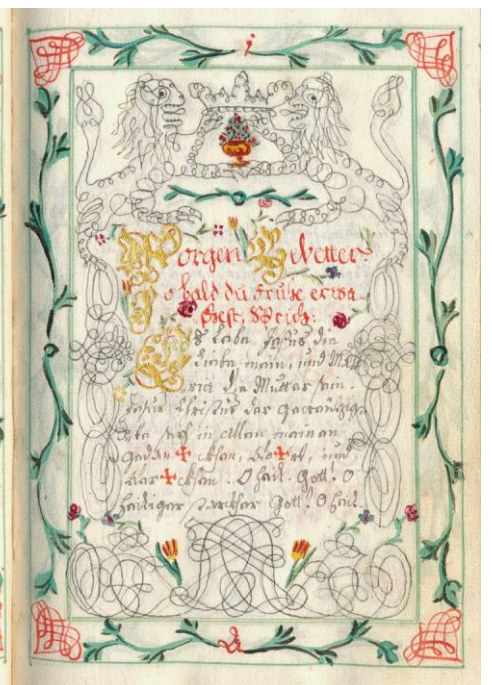 1
Morgen Gebetter
So bald du Fruhe erwa
chest, Sprich:
Es Lebe Jesus die
Liebe mein, und Ma
ria die Mutter sein.
Jesus Christus der Gecreutzig
te seÿ in allen meinen
Gedan ✚ cken, wo ✚ rt, und
wer ✚ cken. O heil. Gott! O
heiliger starcker Gott! O heil.